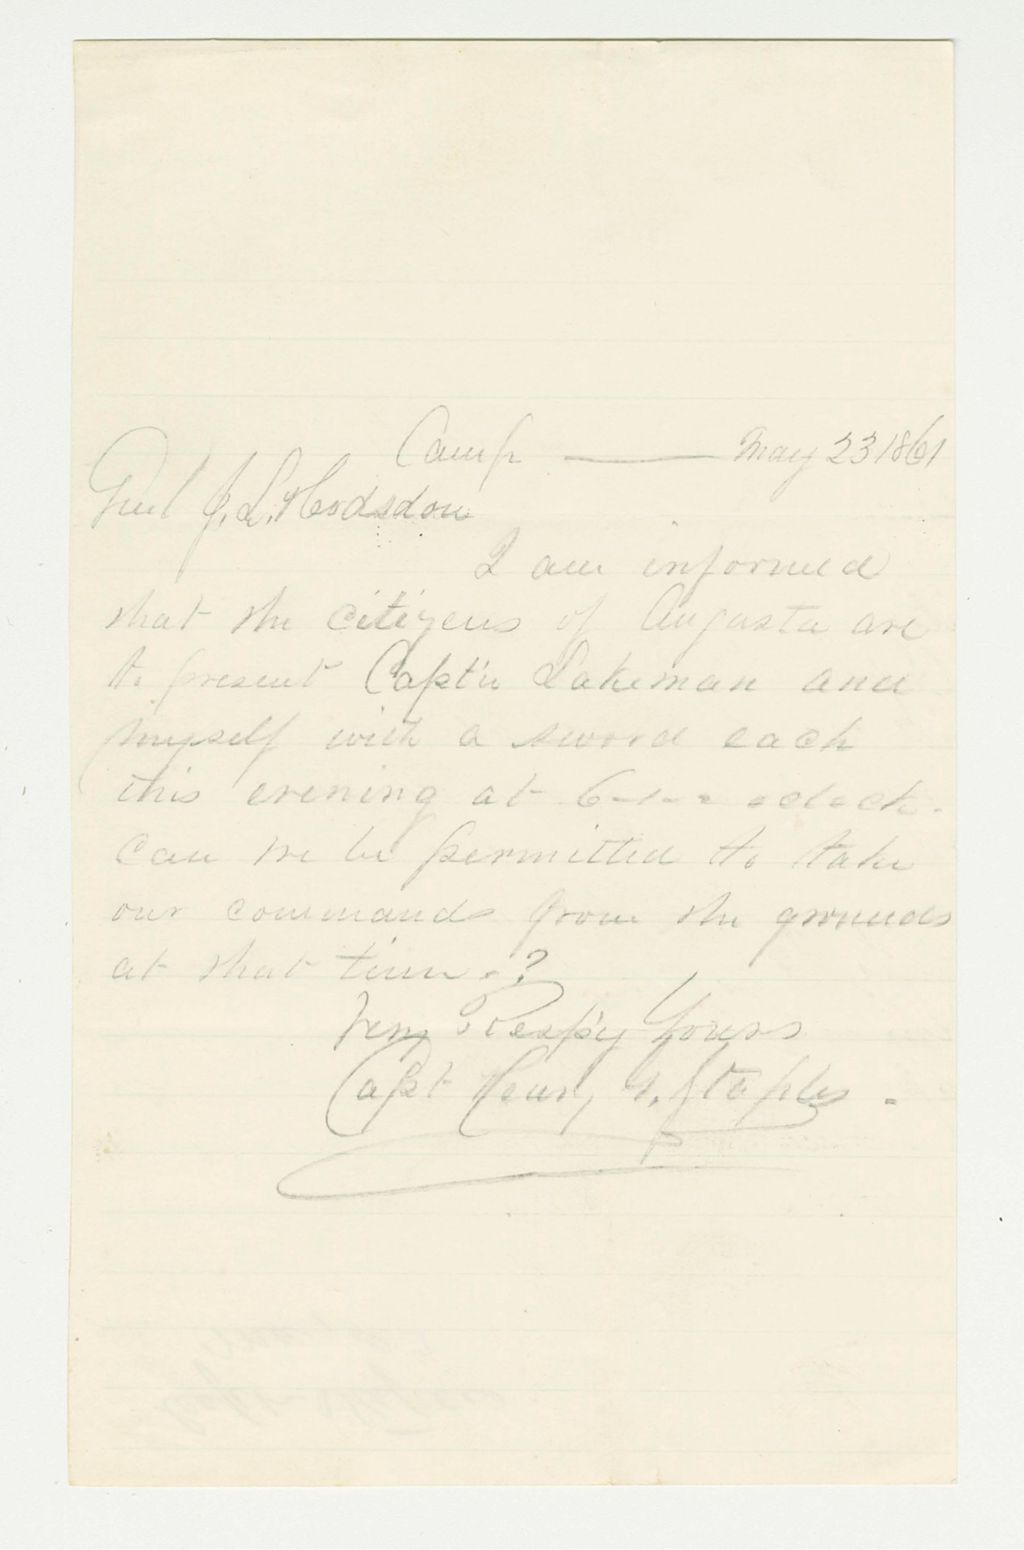 Camp —— May 23 1861
Genl J. L. Hodsdon
I am informed
that the citizens of Augusta are
to present Capt'n Lakeman and
myself with a sword each
this evening at 6 oclock.
Can we be permitted to take
our commands from the grounds
at that time.?
Very Resp'y Yours
Capt Henry G. Staples.